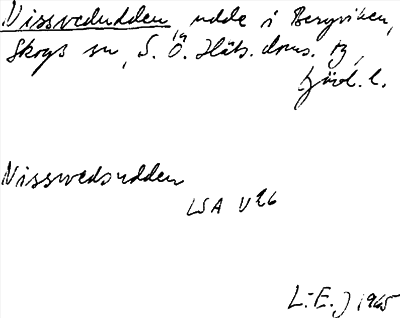 Nissvedudden udde i Bergviken,
Skogs sn, S. Ö. Häls. doms. tg,
Gävl. l.
Nisswedsudden
LSA V26
L-E. J 1965